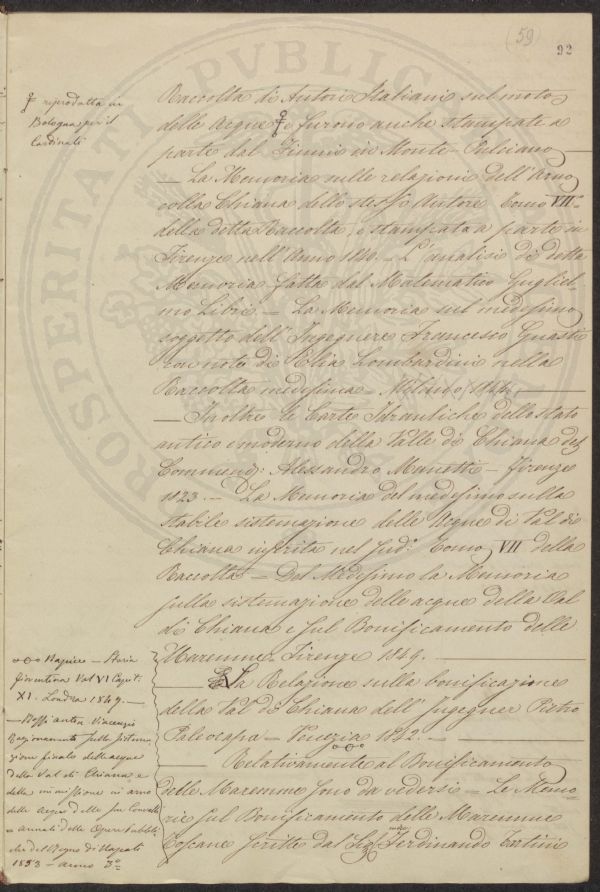 (59)
92
riprodotta in
Bologna per il
Cardinali
Raccolta di Autori Italiani sul moto
delle Acque e furono anche stampate a
parte dal Fiumi in Monte-Pulciano
— La Memoria sulle relazioni dell'Arno
colla Chiana dello stesso Autore Tomo VII°
della detta Raccolta, e stampata a parte in
Firenze nell'Anno 1840. — L'analisi di detta
Memoria fatta dal Matematico Gugliel-
mo Libri. — La Memoria sul medesimo
soggetto dell'Ingegnere Francesco Guasti
con note di Elia Lombardini nella
Raccolta medesima — Milano 1844. —
— Inoltre le Carte Idrauliche dello stato
antico e moderno della Valle di Chiana del
Commend: Alessandro Manetti — Firenze
1823. — La Memoria del medesimo sulla
stabile sistemazione delle Acque di Val di
Chiana inserita nel sud.° Tomo VII della
Raccolta — Del Medesimo la Memoria
sulla sistemazione delle acque della Val
di Chiana e sul Bonificamento delle
Maremme Firenze 1849. —
— La Relazione sulla bonificazione
della Val di Chiana dell'Ingegner Pietro
Paleocapa — Venezia 1842. —
— Relativamente al Bonificamento
delle Maremme sono da vedersi — Le Memo-
rie sul Bonificamento delle Maremme
Toscane scritte dal Ferdinando Tartini
Napier — Storia
fiorentina Vol VI Capit:
XI. Londra 1849. —
— Vincenzio
Ragionamento sulla sistema-
zione finale delle acque
della Val di Chiana e
della immissione in Arno
delle acque
annali delle Opere Pubbli-
che del Regno di Napoli
1853 — anno 3°
PROSPERITATI PVBLIC